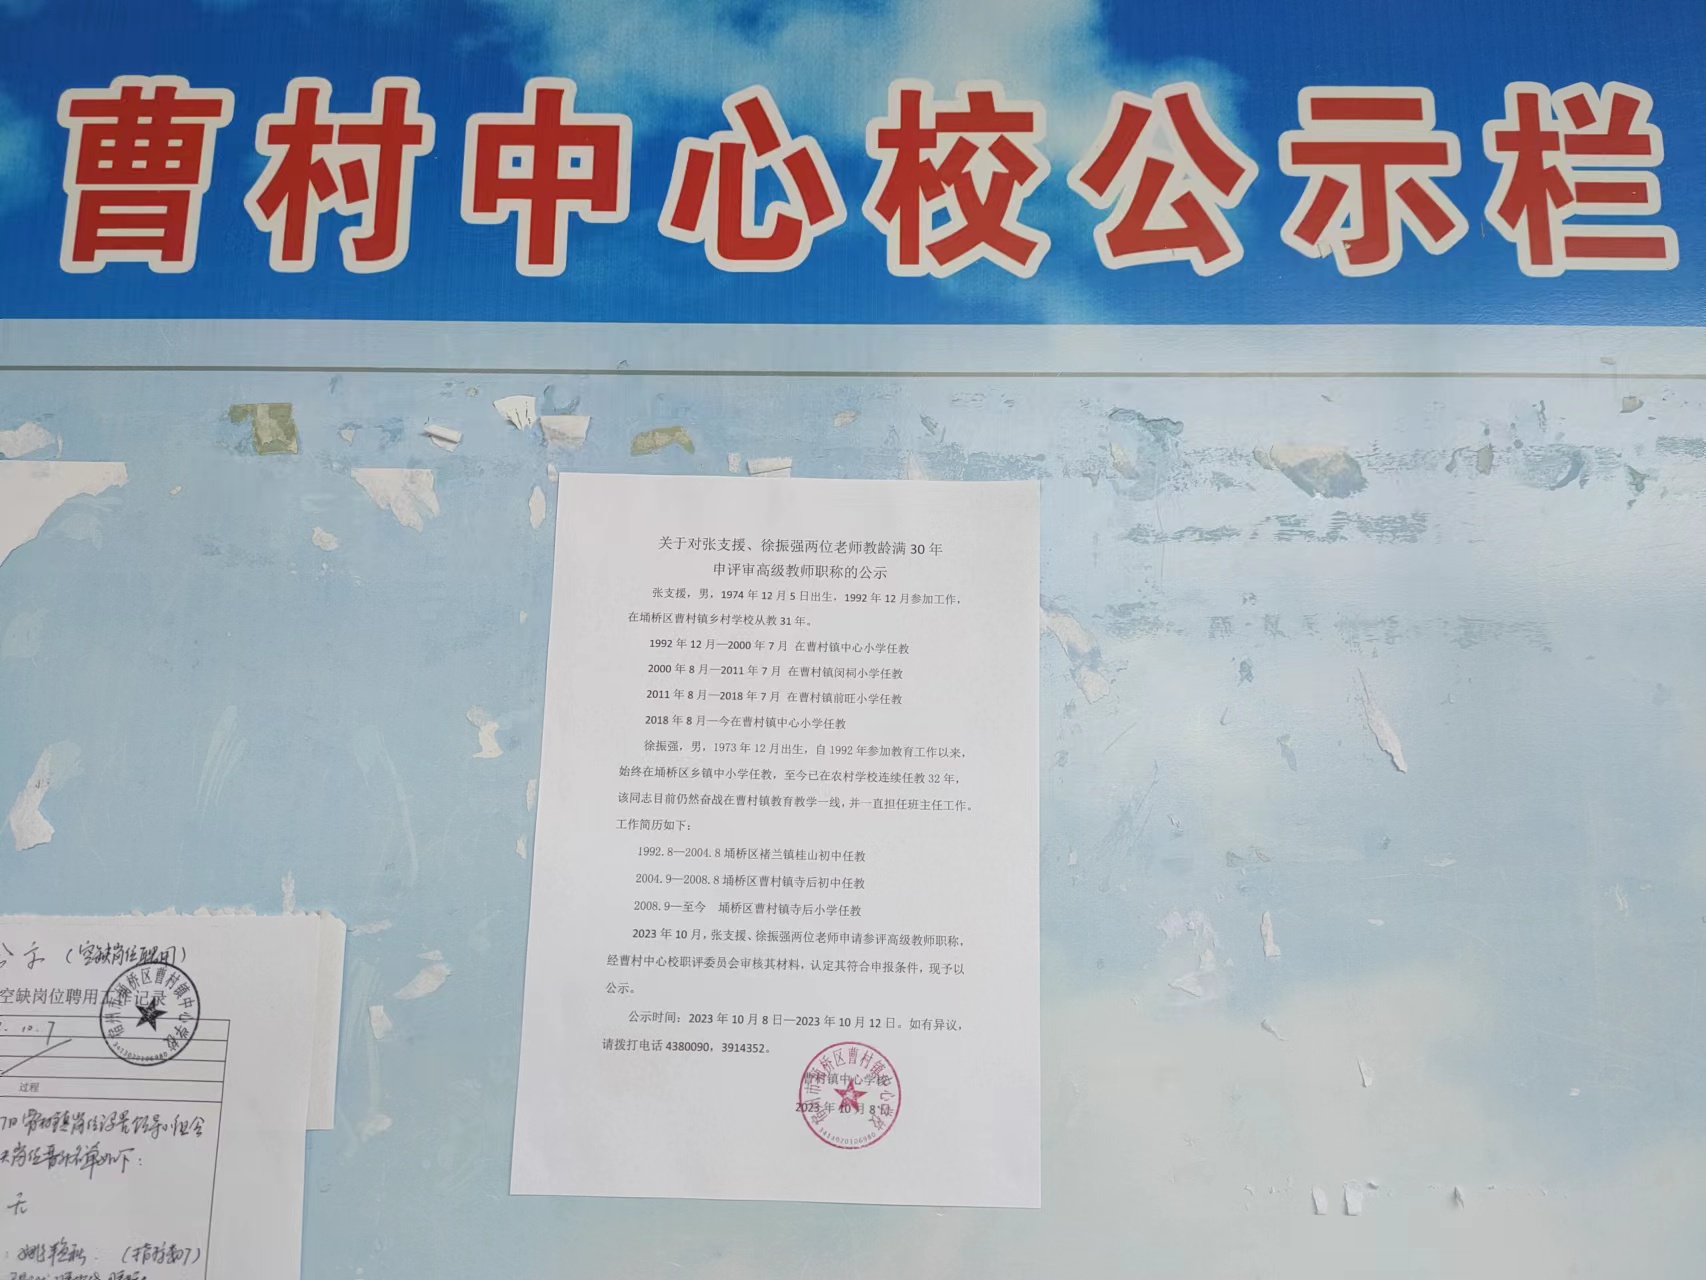 曹村中心校公示栏
关于对张支援、徐振强两位老师教龄满 30 年
申评审高级教师职称的公示
张支援，男，1974 年 12 月 5 日出生，1992 年 12 月参加工作，
在埇桥区曹村镇乡村学校从教 31 年。
1992 年 12 月—2000 年 7 月 在曹村镇中心小学任教
2000 年 8 月—2011 年 7 月 在曹村镇闵祠小学任教
2011 年 8 月—2018 年 7 月 在曹村镇前旺小学任教
2018 年 8 月—今在曹村镇中心小学任教
徐振强，男，1973 年 12 月出生，自 1992 年参加教育工作以来，
始终在埇桥区乡镇中小学任教，至今已在农村学校连续任教 32 年，
该同志目前仍然奋战在曹村镇教育教学一线，并一直担任班主任工作。
工作简历如下：
1992.8—2004.8 埇桥区褚兰镇桂山初中任教
2004.9—2008.8 埇桥区曹村镇寺后初中任教
2008.9—至今 埇桥区曹村镇寺后小学任教
2023 年 10 月，张支援、徐振强两位老师申请参评高级教师职称，
经曹村中心校职评委员会审核其材料，认定其符合申报条件，现予以
公示。
公示时间：2023 年 10 月 8 日—2023 年 10 月 12 日。如有异议，
请拨打电话 4380090，3914352。
曹村镇中心学校
2023 年 10 月 8 日
宿州市埇桥区曹村镇中心学校
3413020106980
公示（空缺岗位聘用）
空缺岗位聘用工作记录
宿州市埇桥区曹村镇中心学校
3413020106980
.10.7
过程
7日曹村镇岗位设置领导小组会
岗位晋升名单如下：
无